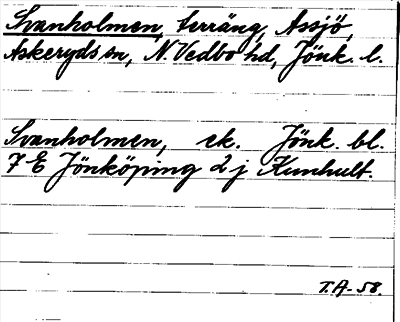 Svanholmen, terräng, Assjö,
Askeryds sn, N. Vedbo hd, Jönk. l.
Svanholmen, ek. Jönk. bl.
7 E Jönköping 2 j Kumhult.
T.A-58.